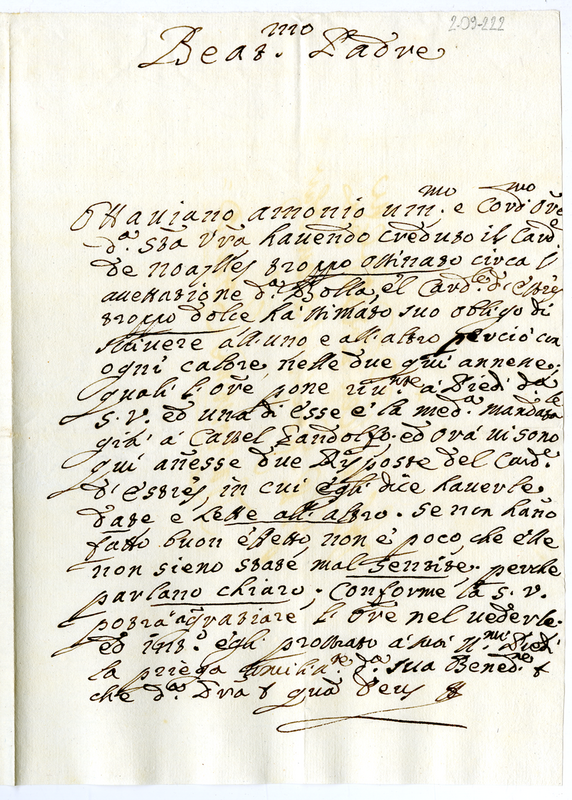 2-09-222
Beat.mo Padre
Ottaviano Antonio um.mo e Cord. Ore
d.a Stà Vrà havendo creduto il Card.
de Noaylles troppo ostinato circa l'
accettazione d.a Bolla, e'l Card.le d'Estrés
troppo dolce hà stimato suo obligo di
scrivere all'uno e all'altro perciò con
ogni calore, nelle due quì annesse,
quali l'Ore pone riv.nte a' Piedi d.a
S. V. ed una di esse è la med.a mandata
già à Castel Gandolfo. ed ora vi sono
quì añesse due Risposte del Card.
d'Estrés, in cui egli dice haverle
date e lette all'altro. Se non hãno
fatto buon effetto, non è poco che elle
non sieno state mal sentite, perche
parlano chiaro. Conforme la S. V.
potrà ... l'Ore nel vederle.
ed ... egli prostrato a' suoi ... Piedi
la priega umilia.te d.a sua Bened.ne
che d.a ... quà Deus